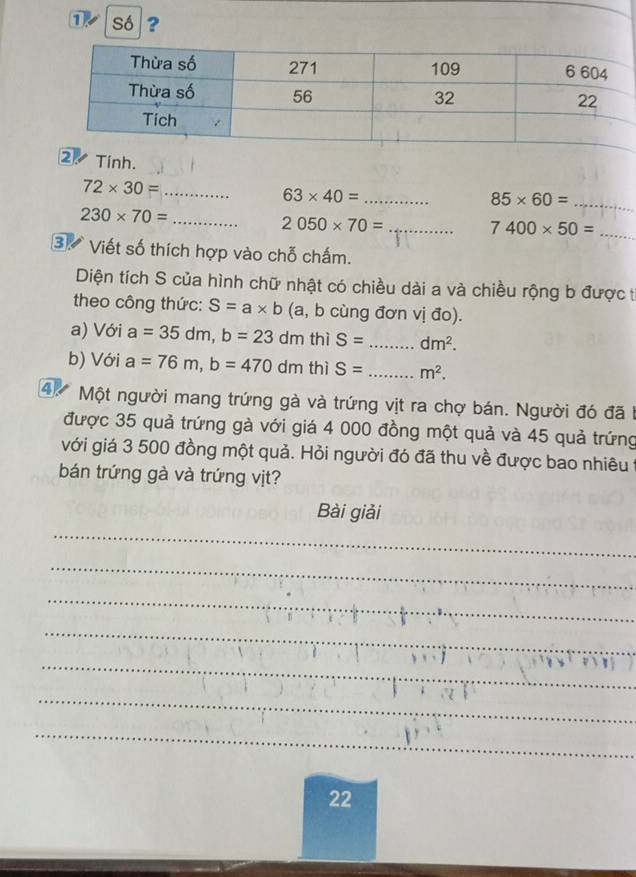 1 Số ?
Thừa số 271 109 6 604
Thừa số 56 32 22
Tích
2 Tính.
72 × 30 = ............ 63 × 40 = ............ 85 × 60 = ............
230 × 70 = ............ 2 050 × 70 = ............ 7 400 × 50 = .......
3 Viết số thích hợp vào chỗ chấm.
Diện tích S của hình chữ nhật có chiều dài a và chiều rộng b được
theo công thức: S = a × b (a, b cùng đơn vị đo).
a) Với a = 35 dm, b = 23 dm thì S = ......... dm².
b) Với a = 76 m, b = 470 dm thì S = ......... m².
4 Một người mang trứng gà và trứng vịt ra chợ bán. Người đó đã
được 35 quả trứng gà với giá 4 000 đồng một quả và 45 quả trứng
với giá 3 500 đồng một quả. Hỏi người đó đã thu về được bao nhiêu
bán trứng gà và trứng vịt?
Bài giải
22